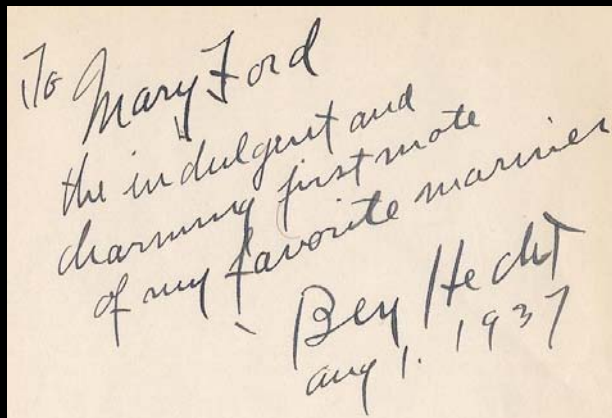 To Mary Ford
the indulgent and
charming first mate
of my favorite mariner
Ben Hecht
aug 1. 1937